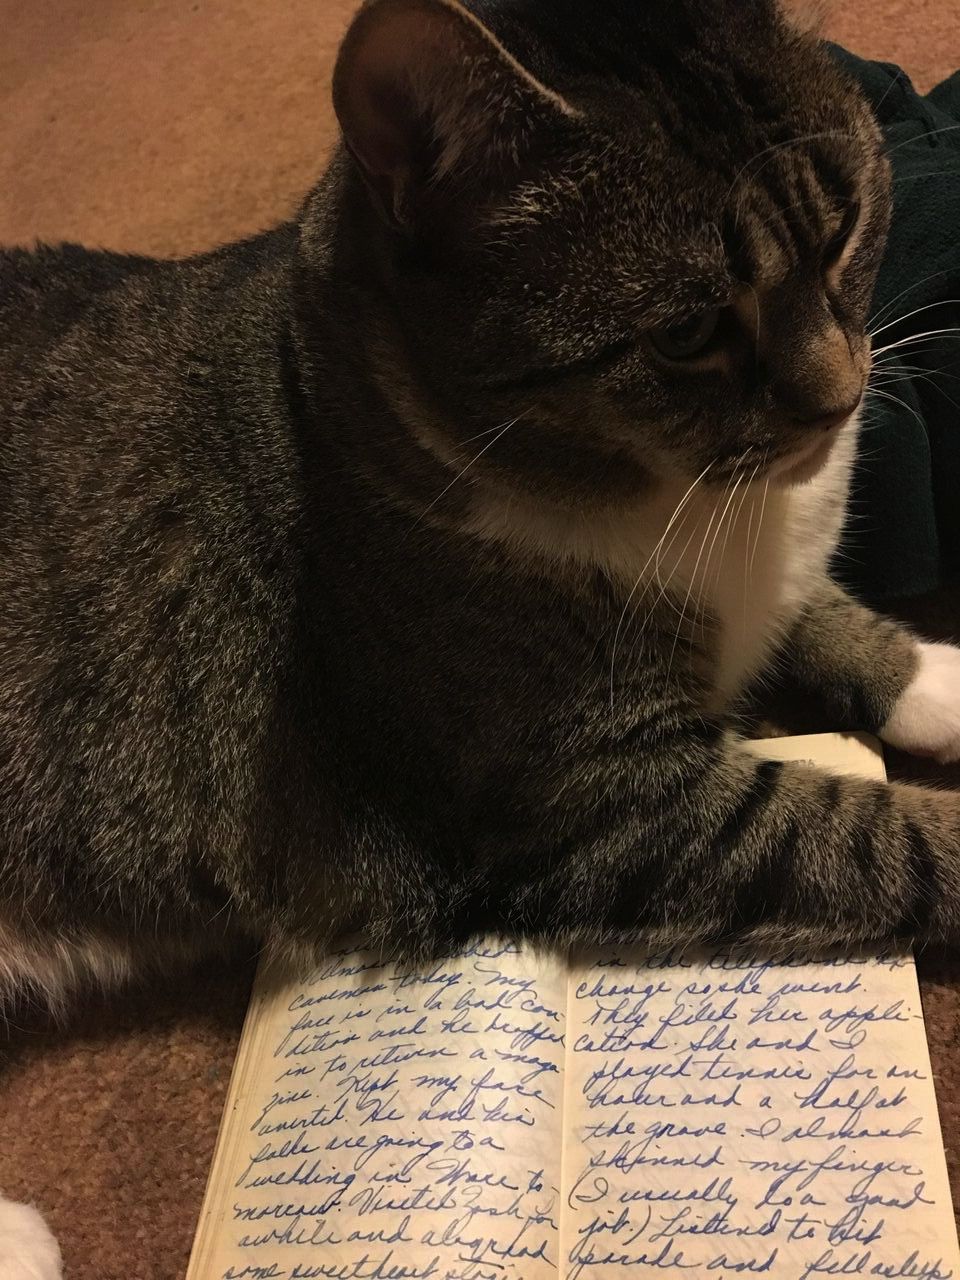 almost
caveman today. My
face is in a bad con-
dition and he dropped
in to return a maga-
zine. Kept my face
averted. He and his
folks are going to a
wedding in Ware to-
morrow. Visited Zosh for
awhile and also read
some sweetheart stories
in the telephone ex
change so she went.
They filed her appli-
cation. She and I
played tennis for an
hour and a half at
the grove. I almost
skinned my finger
(I usually do a good
job.) Listened to hit
parade and fell asleep